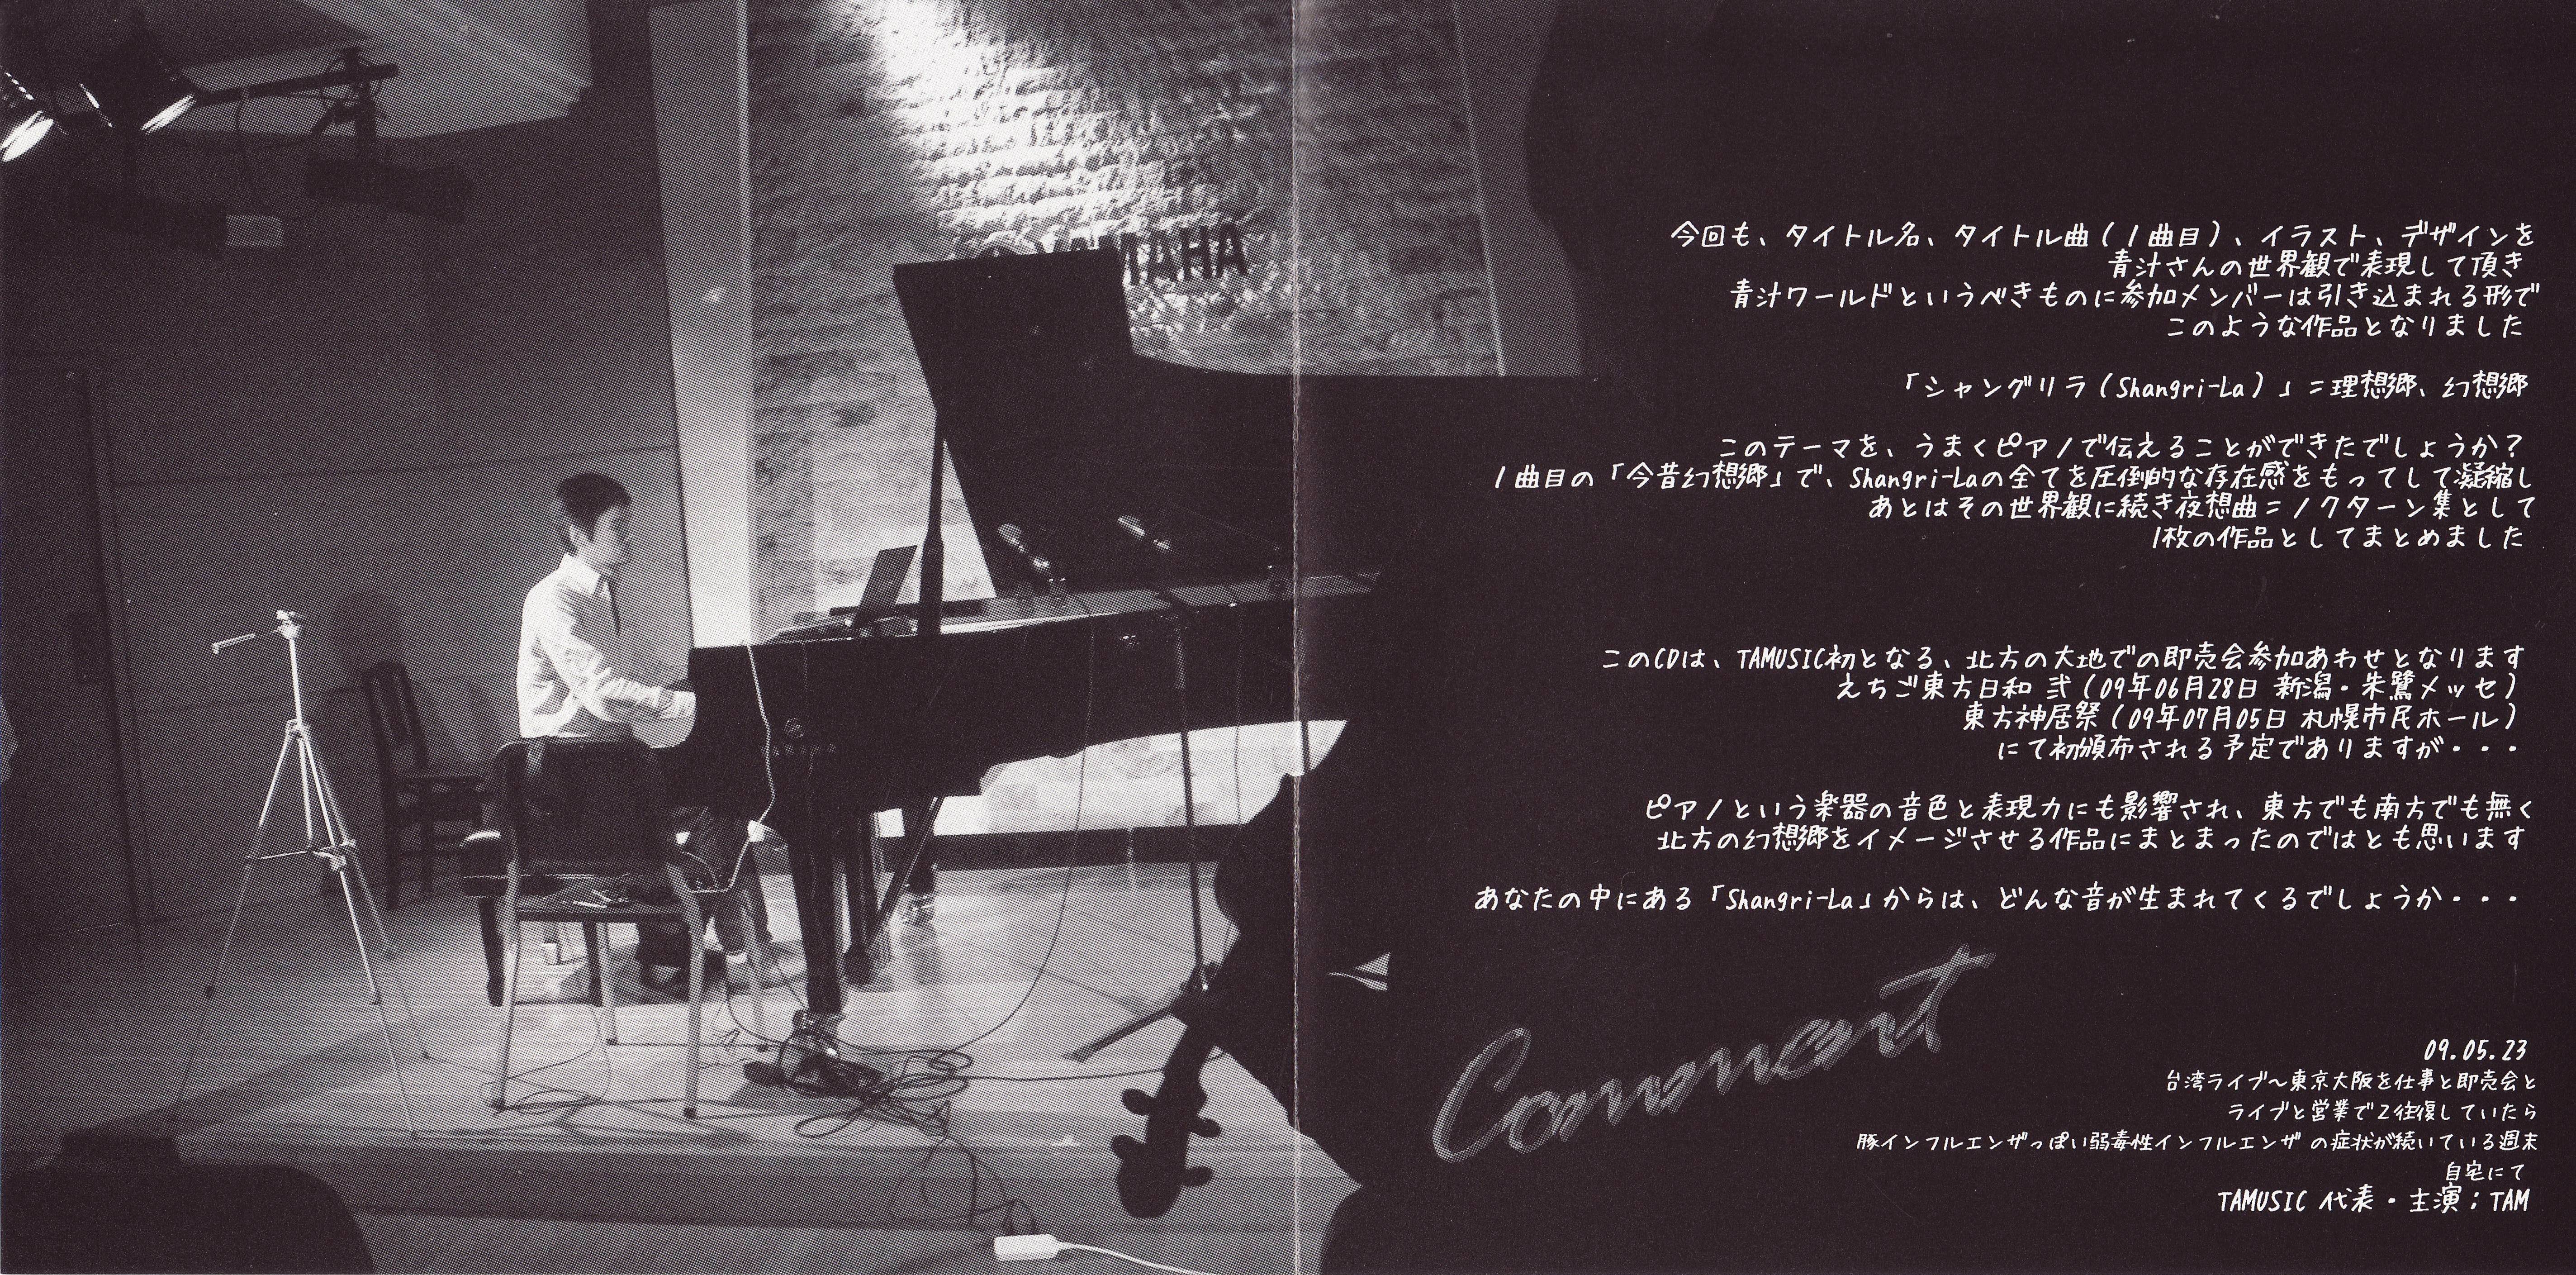 YAMAHA
YAMAHA
今回も、タイトル名、タイトル曲(1曲目)、イラスト、デザインを
青汁さんの世界観で表現して頂き
青汁ワールドというべきものに参加メンバーは引き込まれる形で
このような作品となりました
「シャングリラ(Shangri-La)」=理想郷、幻想郷
このテーマを、うまくピアノで伝えることができたでしょうか?
1曲目の「今昔幻想郷」で、Shangri-Laの全てを圧倒的な存在感をもってして凝縮し
あとはその世界観に続き夜想曲=ノクターン集として
1枚の作品としてまとめました
このCDは、TAMUSIC初となる、北方の大地での即売会参加あわせとなります
えちご東方日和 弐(09年06月28日 新潟・朱鷺メッセ)
東方神居祭(09年07月05日 札幌市民ホール)
にて初頒布される予定でありますが・・・
ピアノという楽器の音色と表現力にも影響され、東方でも南方でも無く
北方の幻想郷をイメージさせる作品にまとまったのではとも思います
あなたの中にある「Shangri-La」からは、どんな音が生まれてくるでしょうか・・・
Comment
09.05.23
台湾ライブ~東京大阪を仕事と即売会と
ライブと営業で2往復していたら
豚インフルエンザっぽい弱毒性インフルエンザ の症状が続いている週末
自宅にて
TAMUSIC 代表・主演;TAM